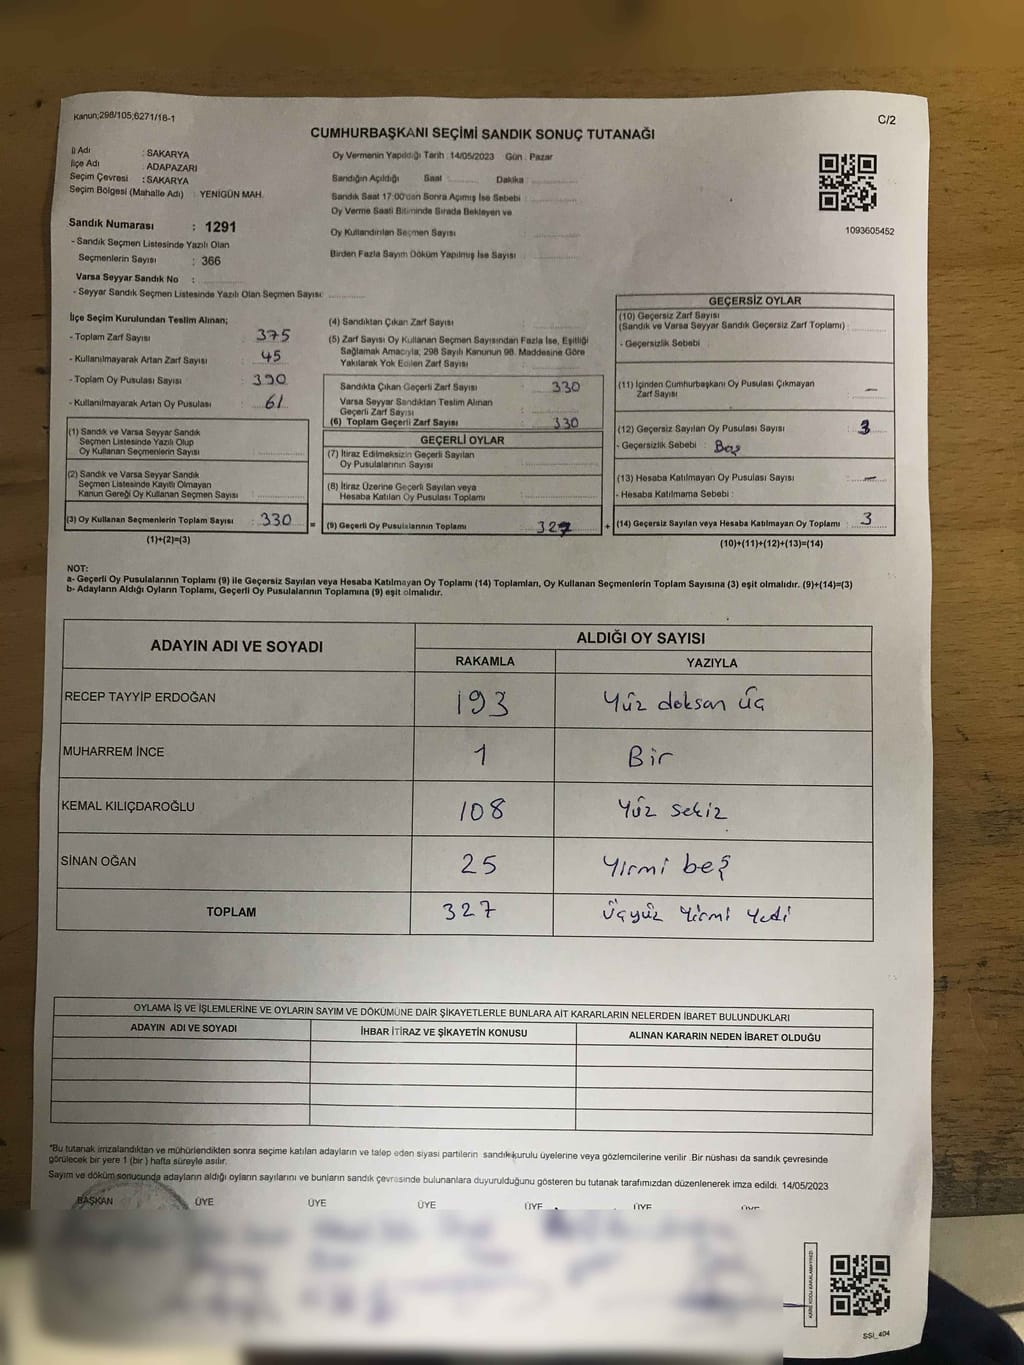 Kanun;298/105;6271/18-1
C/2
CUMHURBAŞKANI SEÇİMİ SANDIK SONUÇ TUTANAĞI
İl Adı : SAKARYA
İlçe Adı : ADAPAZARI
Seçim Çevresi : SAKARYA
Seçim Bölgesi (Mahalle Adı) : YENİGÜN MAH.
Oy Vermenin Yapıldığı Tarih : 14/05/2023 Gün : Pazar
Sandığın Açıldığı Saat : Dakika :
Sandık Saat 17:00'den Sonra Açımış İse Sebebi :
Oy Verme Saati Bitiminde Sırada Bekleyen ve
Oy Kullandırılan Seçmen Sayısı :
Birden Fazla Sayım Döküm Yapılmış İse Sayısı :
1093605452
Sandık Numarası : 1291
- Sandık Seçmen Listesinde Yazılı Olan
Seçmenlerin Sayısı : 366
Varsa Seyyar Sandık No :
- Seyyar Sandık Seçmen Listesinde Yazılı Olan Seçmen Sayısı:
İlçe Seçim Kurulundan Teslim Alınan;
- Toplam Zarf Sayısı : 375
- Kullanılmayarak Artan Zarf Sayısı : 45
- Toplam Oy Pusulası Sayısı : 390
- Kullanılmayarak Artan Oy Pusulası : 61
(1) Sandık ve Varsa Seyyar Sandık
Seçmen Listesinde Yazılı Olup
Oy Kullanan Seçmenlerin Sayısı :
(2) Sandık ve Varsa Seyyar Sandık
Seçmen Listesinde Kayıtlı Olmayan
Kanun Gereği Oy Kullanan Seçmen Sayısı :
(3) Oy Kullanan Seçmenlerin Toplam Sayısı : 330
(1)+(2)=(3)
=
(4) Sandıktan Çıkan Zarf Sayısı :
(5) Zarf Sayısı Oy Kullanan Seçmen Sayısından Fazla İse, Eşitliği
Sağlamak Amacıyla; 298 Sayılı Kanunun 98. Maddesine Göre
Yakılarak Yok Edilen Zarf Sayısı :
Sandıkta Çıkan Geçerli Zarf Sayısı : 330
Varsa Seyyar Sandıktan Teslim Alınan
Geçerli Zarf Sayısı :
(6) Toplam Geçerli Zarf Sayısı : 330
GEÇERLİ OYLAR
(7) İtiraz Edilmeksizin Geçerli Sayılan
Oy Pusulalarının Sayısı :
(8) İtiraz Üzerine Geçerli Sayılan veya
Hesaba Katılan Oy Pusulası Toplamı :
(9) Geçerli Oy Pusulalarının Toplamı : 327
+
GEÇERSİZ OYLAR
(10) Geçersiz Zarf Sayısı
(Sandık ve Varsa Seyyar Sandık Geçersiz Zarf Toplamı) :
- Geçersizlik Sebebi :
(11) İçinden Cumhurbaşkanı Oy Pusulası Çıkmayan
Zarf Sayısı : —
(12) Geçersiz Sayılan Oy Pusulası Sayısı : 3
- Geçersizlik Sebebi : Boş
(13) Hesaba Katılmayan Oy Pusulası Sayısı : —
- Hesaba Katılmama Sebebi :
(14) Geçersiz Sayılan veya Hesaba Katılmayan Oy Toplamı : 3
(10)+(11)+(12)+(13)=(14)
NOT:
a- Geçerli Oy Pusulalarının Toplamı (9) ile Geçersiz Sayılan veya Hesaba Katılmayan Oy Toplamı (14) Toplamları, Oy Kullanan Seçmenlerin Toplam Sayısına (3) eşit olmalıdır. (9)+(14)=(3)
b- Adayların Aldığı Oyların Toplamı, Geçerli Oy Pusulalarının Toplamına (9) eşit olmalıdır.
ADAYIN ADI VE SOYADI
ALDIĞI OY SAYISI
RAKAMLA YAZIYLA
RECEP TAYYİP ERDOĞAN 193 Yüz doksan üç
MUHARREM İNCE 1 Bir
KEMAL KILIÇDAROĞLU 108 Yüz sekiz
SİNAN OĞAN 25 Yirmi beş
TOPLAM 327 Üçyüz Yirmi Yedi
OYLAMA İŞ VE İŞLEMLERİNE VE OYLARIN SAYIM VE DÖKÜMÜNE DAİR ŞİKAYETLERLE BUNLARA AİT KARARLARIN NELERDEN İBARET BULUNDUKLARI
ADAYIN ADI VE SOYADI İHBAR İTİRAZ VE ŞİKAYETİN KONUSU ALINAN KARARIN NEDEN İBARET OLDUĞU
*Bu tutanak imzalandıktan ve mühürlendikten sonra seçime katılan adayların ve talep eden siyasi partilerin sandık kurulu üyelerine veya gözlemcilerine verilir .Bir nüshası da sandık çevresinde
görülecek bir yere 1 (bir ) hafta süreyle asılır.
Sayım ve döküm sonucunda adayların aldığı oyların sayılarını ve bunların sandık çevresinde bulunanlara duyurulduğunu gösteren bu tutanak tarafımızdan düzenlenerek imza edildi. 14/05/2023
BAŞKAN ÜYE ÜYE ÜYE ÜYE ÜYE ÜYE
KARE KODU KARALAMAYINIZ!
SSİ_404